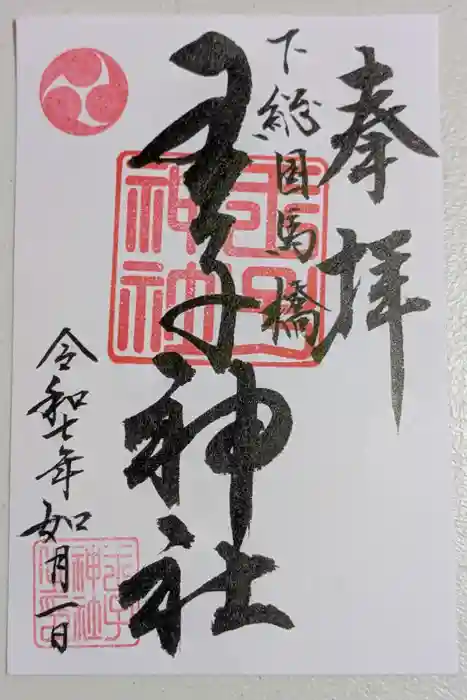 奉拝
下総国馬橋
王子神社
令和七年如月一日
王子
神社